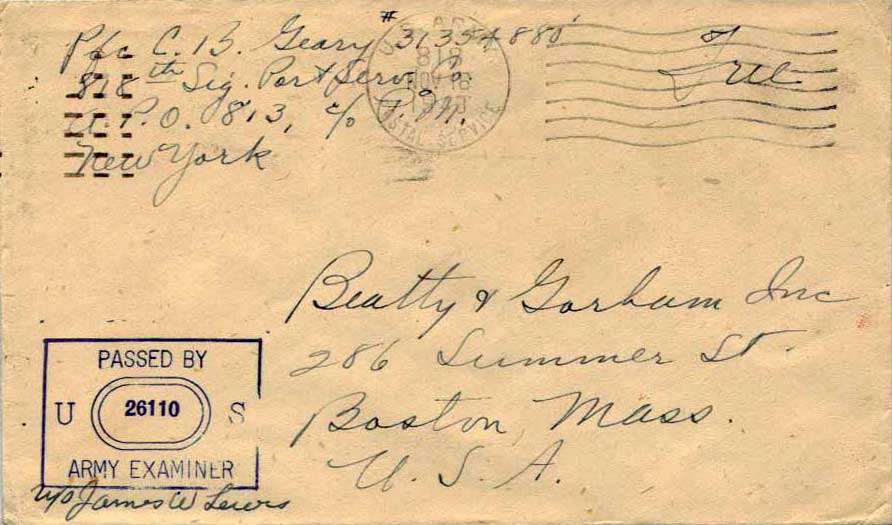 Pfc C. B. Geary #31334880
818th Sig. Port Serv. Co.
A.P.O. 813, c/o P.M.
New York
POSTAL SERVICE
Free
Beatty & Gorham Inc
286 Summer St.
Boston, Mass.
U. S. A.
PASSED BY
U 26110 S
ARMY EXAMINER
James W Lewis